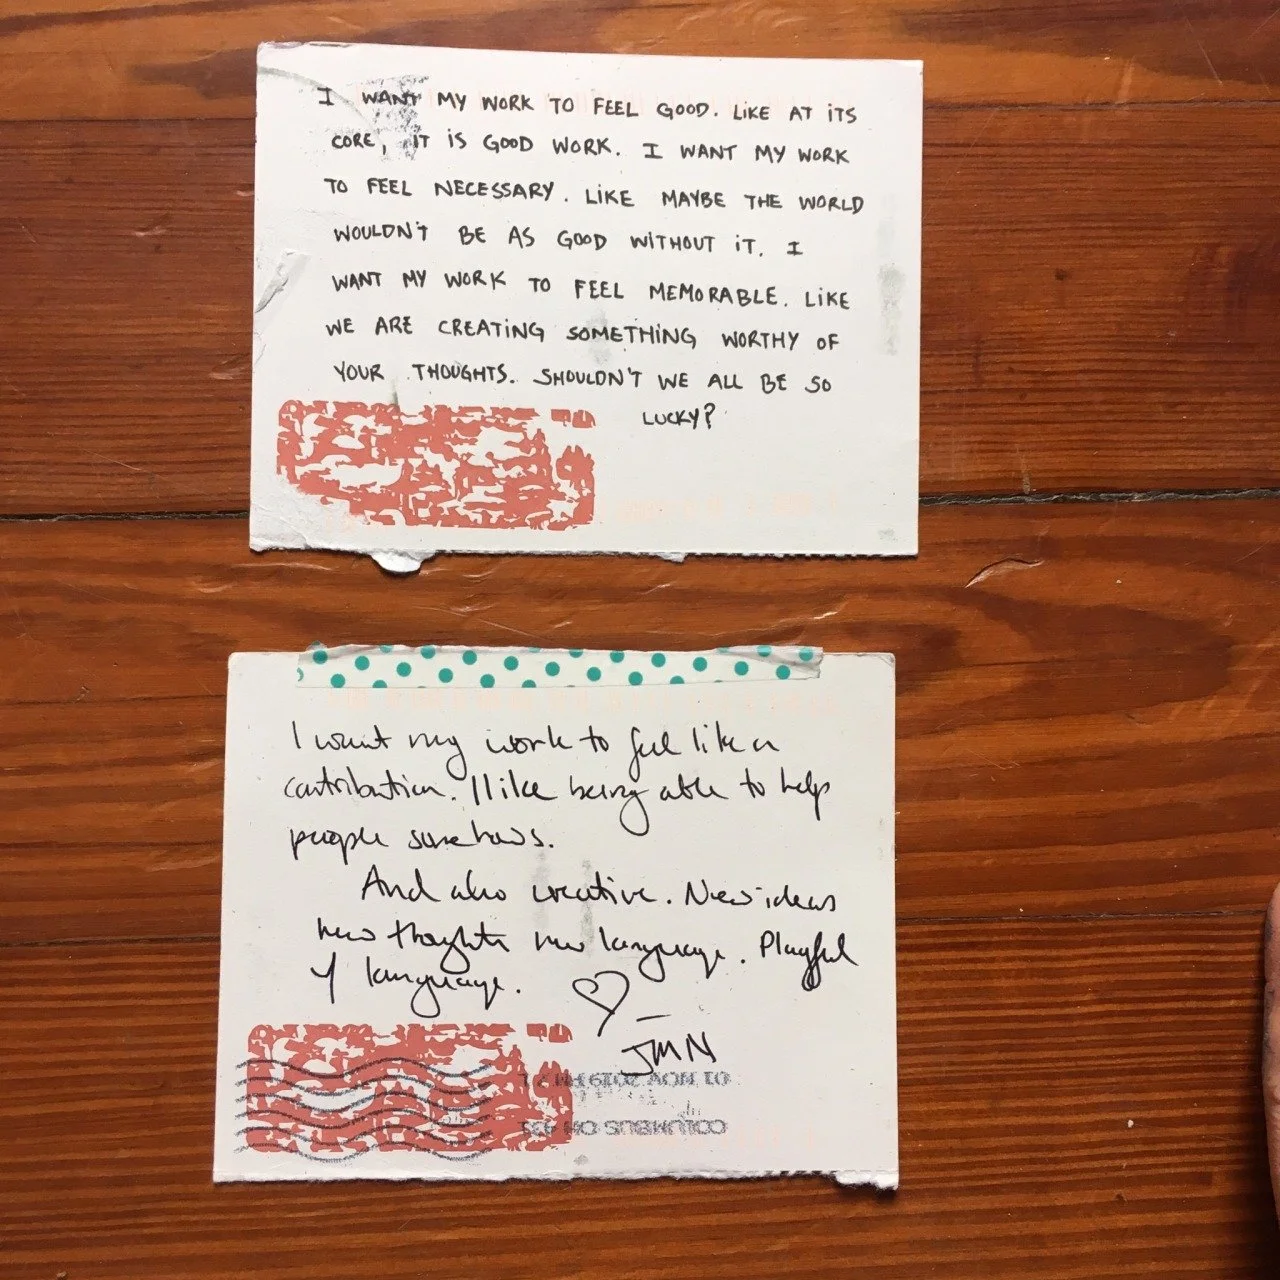 I WANT MY WORK TO FEEL GOOD. LIKE AT ITS
CORE, IT IS GOOD WORK. I WANT MY WORK
TO FEEL NECESSARY. LIKE MAYBE THE WORLD
WOULDN'T BE AS GOOD WITHOUT IT. I
WANT MY WORK TO FEEL MEMORABLE. LIKE
WE ARE CREATING SOMETHING WORTHY OF
YOUR THOUGHTS. SHOULDN'T WE ALL BE SO
LUCKY?
I want my work to feel like a
contribution. I like being able to help
people somehows.
And also creative. New ideas
new thoughts new language. Playful
of language.
JMN
01 NOV 2019 PM
COLUMBUS OH 431